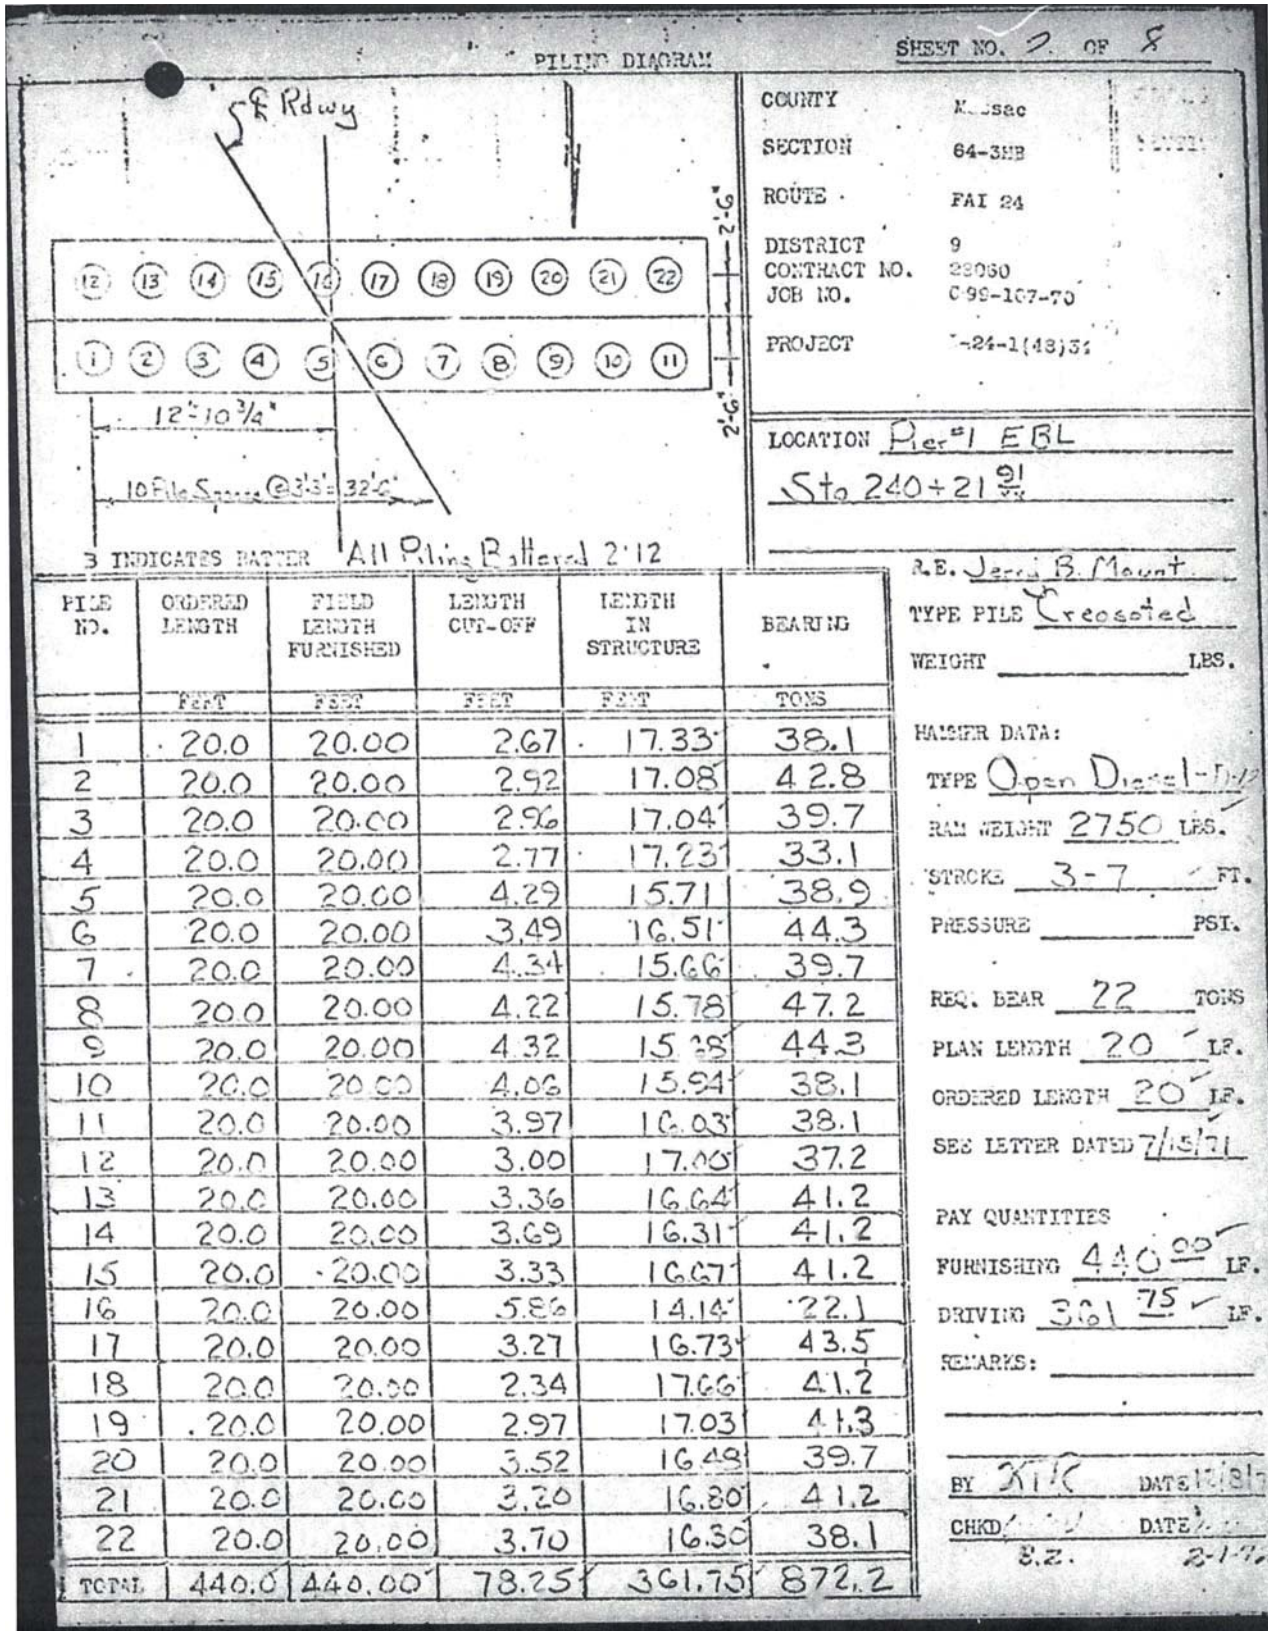 PILING DIAGRAM
SHEET NO. 2 OF 8
℄ Rdwy
2'-6"
12 13 14 15 16 17 18 19 20 21 22
1 2 3 4 5 6 7 8 9 10 11
2'-6"
12'-10 3/4"
10 Pile @ 3'3" = 32'6"
3 INDICATES BATTER All Piling Battered 2:12
COUNTY
SECTION 64-3HB
ROUTE FAI 24
DISTRICT 9
CONTRACT NO. 28060
JOB NO. C-99-107-70
PROJECT
LOCATION Pier #1 EBL
Sta 240+21 91
R.E. Jerry B. Mount
TYPE PILE Creosoted
WEIGHT LBS.
HAMMER DATA:
TYPE Open Diesel-D-12
RAM WEIGHT 2750 LBS.
STROKE 3-7 FT.
PRESSURE PSI.
REQ. BEAR 22 TONS
PLAN LENGTH 20 LF.
ORDERED LENGTH 20 LF.
SEE LETTER DATED 7/15/71
PAY QUANTITIES
FURNISHING 440 00 LF.
DRIVING 361 75 LF.
REMARKS:
BY DATE
CHKD DATE
E.Z. 2-1-
PILE NO. ORDERED LENGTH FIELD LENGTH FURNISHED LENGTH CUT-OFF LENGTH IN STRUCTURE BEARING
FEET FEET FEET FEET TONS
1 20.0 20.00 2.67 17.33 38.1
2 20.0 20.00 2.92 17.08 42.8
3 20.0 20.00 2.96 17.04 39.7
4 20.0 20.00 2.77 17.23 33.1
5 20.0 20.00 4.29 15.71 38.9
6 20.0 20.00 3.49 16.51 44.3
7 20.0 20.00 4.34 15.66 39.7
8 20.0 20.00 4.22 15.78 47.2
9 20.0 20.00 4.32 44.3
10 20.0 20.00 4.06 15.94 38.1
11 20.0 20.00 3.97 16.03 38.1
12 20.0 20.00 3.00 17.00 37.2
13 20.0 20.00 3.36 16.64 41.2
14 20.0 20.00 3.69 16.31 41.2
15 20.0 20.00 3.33 16.67 41.2
16 20.0 20.00 5.86 14.14 22.1
17 20.0 20.00 3.27 16.73 43.5
18 20.0 20.00 2.34 17.66 41.2
19 20.0 20.00 2.97 17.03 41.3
20 20.0 20.00 3.52 16.48 39.7
21 20.0 20.00 3.20 16.80 41.2
22 20.0 20.00 3.70 16.30 38.1
TOTAL 440.0 440.00 78.25 361.75 872.2